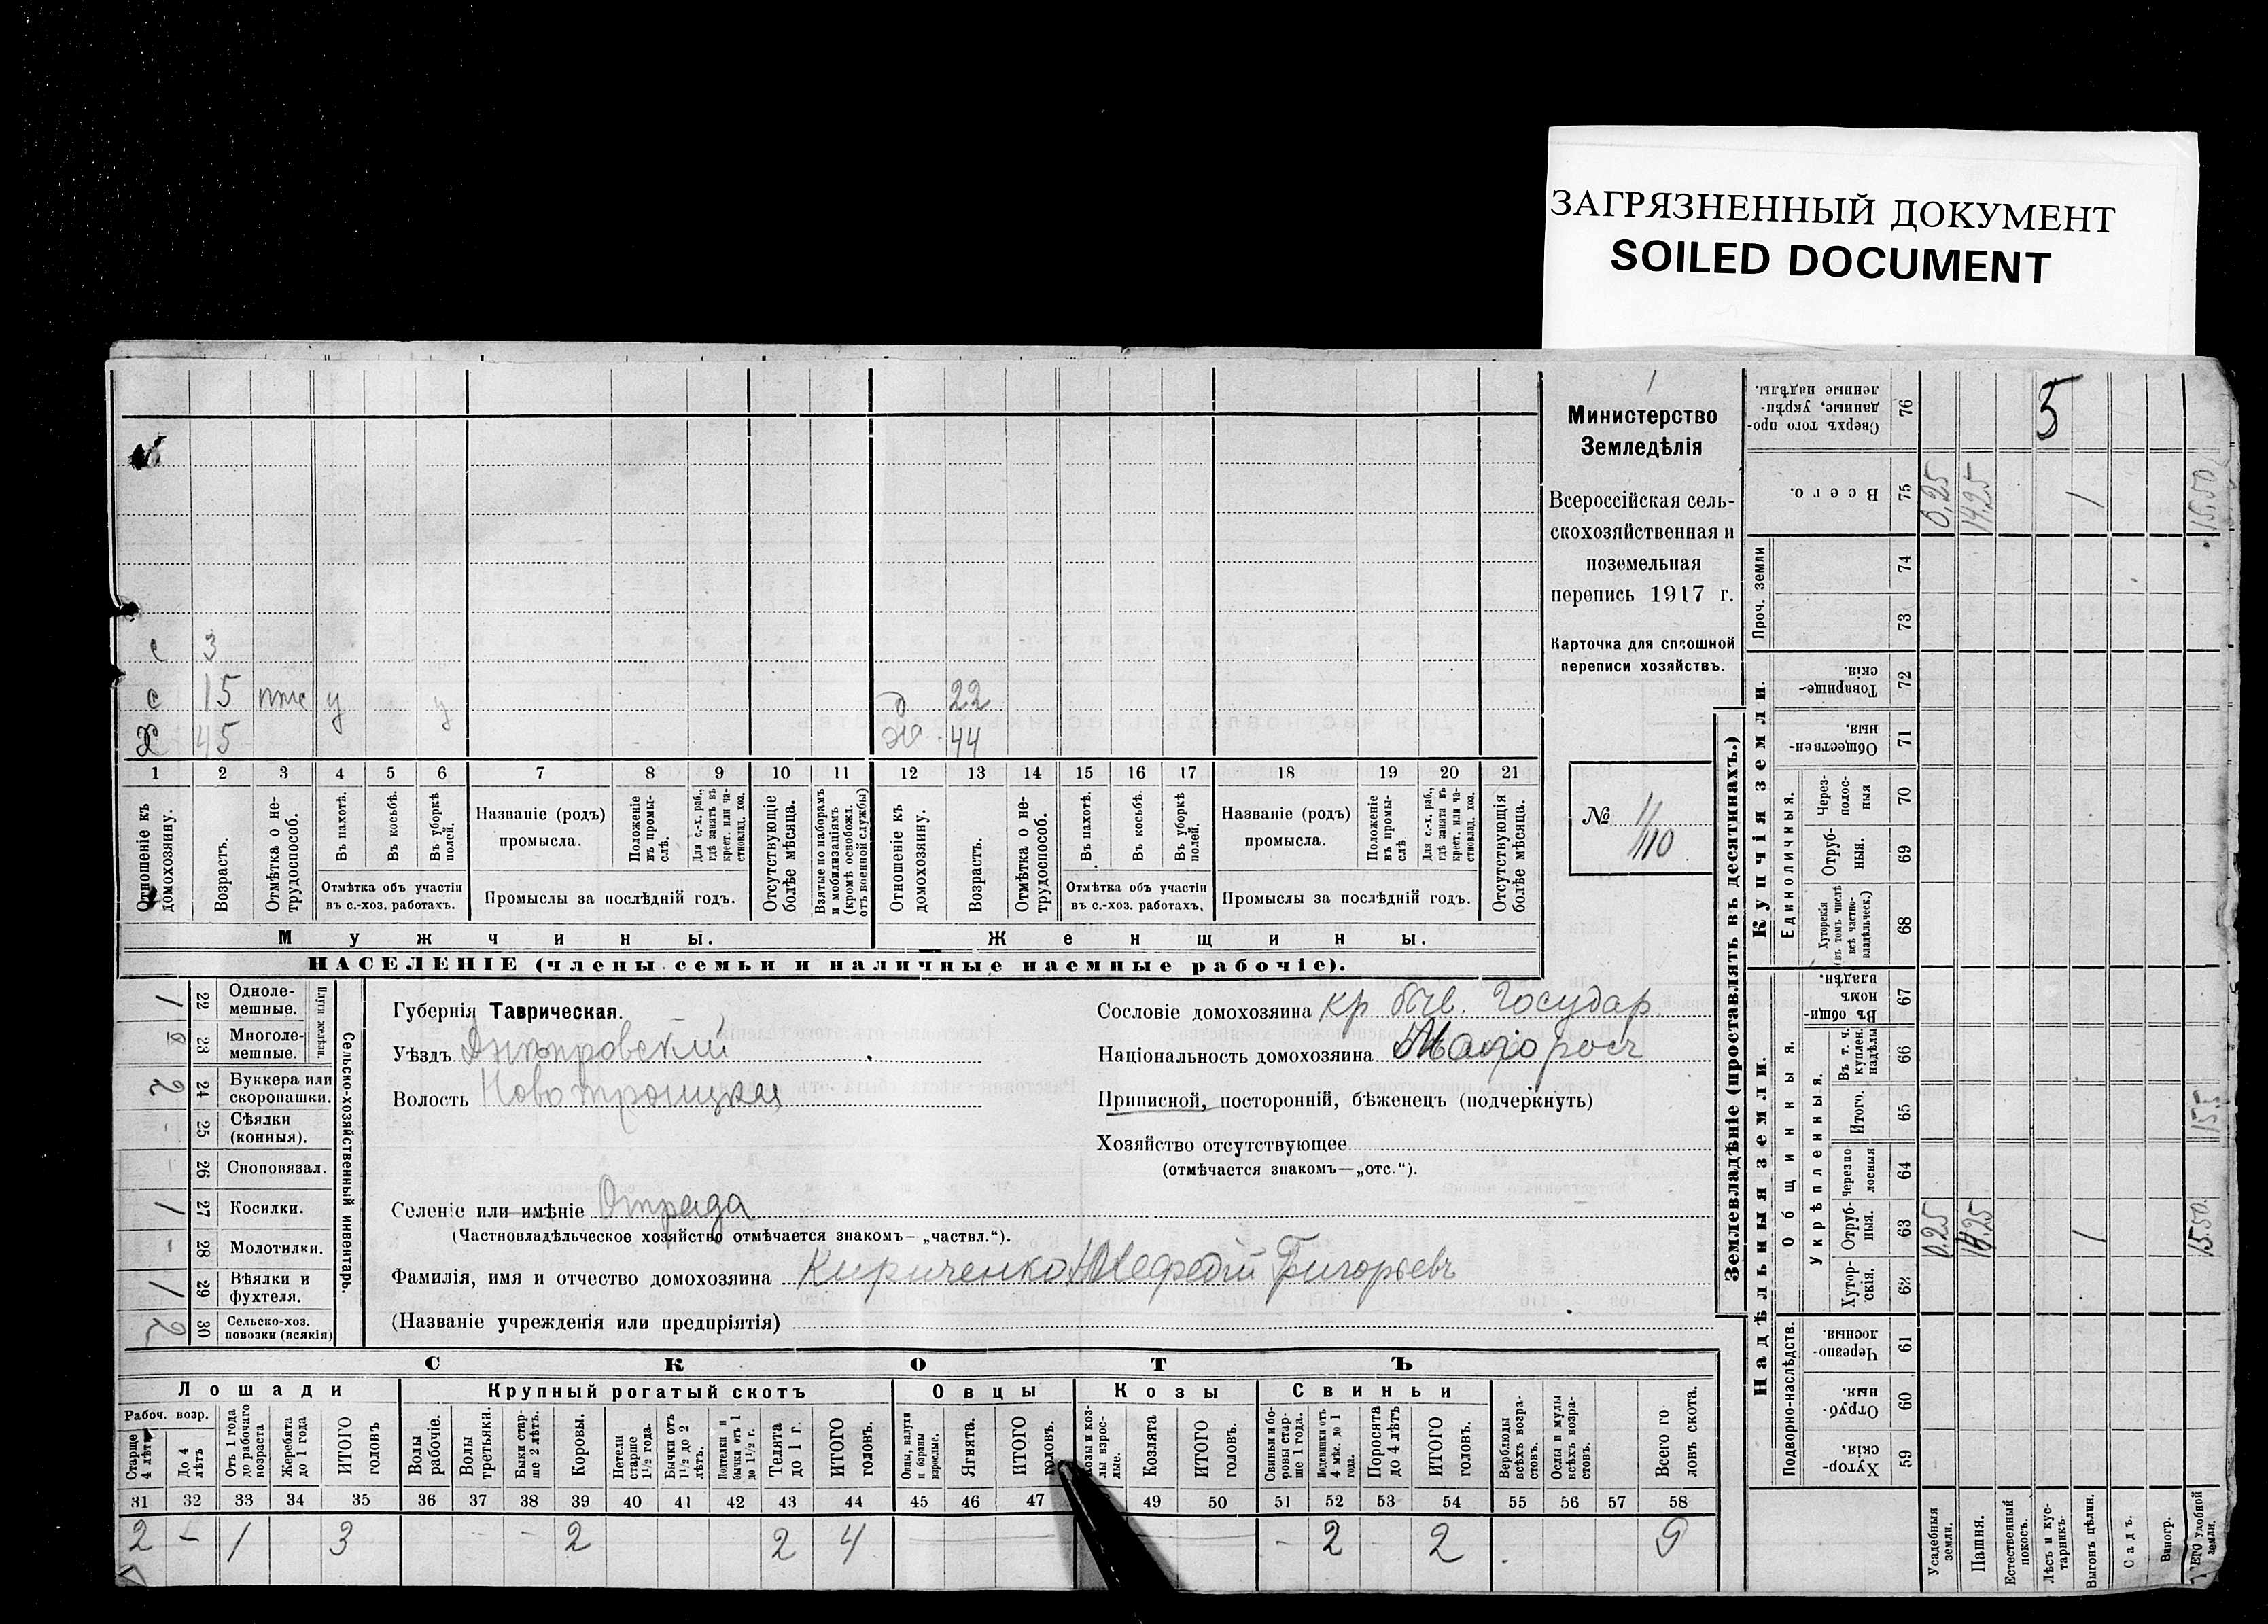 ЗАГРЯЗНЕННЫЙ ДОКУМЕНТ
SOILED DOCUMENT
Министерство
Земледѣлія
Всероссійская сель-
скохозяйственная и
поземельная
перепись 1917 г.
Карточка для сплошной
переписи хозяйствъ.
№ 1/110
с 3
с 15 у у
д 22
Х 45
44
1 2 3 4 5 6 7 8 9 10 11 12 13 14 15 16 17 18 19 20 21
Отношеніе къ домохозяину.
Возрастъ.
Отмѣтка о не-трудоспособ.
Въ пахотѣ.
Въ косьбѣ.
Въ уборкѣ полей.
Отмѣтка объ участіи
въ с.-хоз. работахъ.
Названіе (родъ)
промысла.
Положеніе въ промы-слѣ.
Для с.-х. раб., гдѣ занятъ въ крест. или ча-стновлад. хоз.
Промыслы за послѣдній годъ.
Отсутствующіе болѣе мѣсяца.
Взятые по наборамъ и мобилизаціямъ (кромѣ освобожд. отъ военной службы)
Отношеніе къ домохозяину.
Возрастъ.
Отмѣтка о не-трудоспособ.
Въ пахотѣ.
Въ косьбѣ.
Въ уборкѣ полей.
Отмѣтка объ участіи
въ с.-хоз. работахъ.
Названіе (родъ)
промысла.
Положеніе въ промы-слѣ
Для с.-х. раб., гдѣ занята въ крест. или ча-стновлад. хоз.
Промыслы за послѣдній годъ.
Отсутствующія болѣе мѣсяца.
Мужчины. Женщины.
НАСЕЛЕНІЕ (члены семьи и наличные наемные рабочіе).
Сельско-хозяйственный инвентарь.
Плуги желѣзн.
1 22 Одноле-мешные.
23 Многоле-мешные.
2 24 Буккера или скоропашки.
- 25 Сѣялки (конныя).
- 26 Сноповязал.
1 27 Косилки.
- 28 Молотилки.
1 29 Вѣялки и фухтеля.
2 30 Сельско-хоз. повозки (всякія)
Губернія Таврическая.
Уѣздъ Днѣпровскій
Волость Новотроицкая
Селеніе или имѣніе Отрада
(Частновладѣльческое хозяйство отмѣчается знакомъ— „частвл.“).
Фамилія, имя и отчество домохозяина Кириченко Мефодій Григорьевъ
(Названіе учрежденія или предпріятія)
Сословіе домохозяина кр. быв. Государ.
Національность домохозяина Малоросъ
Приписной, посторонній, бѣженецъ (подчеркнуть)
Хозяйство отсутствующее
(отмѣчается знакомъ—„отс.“).
СКОТЪ
Лошади Крупный рогатый скотъ Овцы Козы Свиньи
Рабоч. возр.
Старше 4 лѣтъ
До 4 лѣтъ
Отъ 1 года до рабочаго возраста
Жеребята до 1 года
ИТОГО головъ
Волы рабочіе.
Волы третьяки.
Быки стар-ше 2 лѣтъ.
Коровы.
Нетели старше 1½ года.
Бычки отъ 1½ до 2 лѣтъ.
Подтелки и бычки отъ 1 до 1½ г.
Телята до 1 г.
ИТОГО головъ.
Овцы, валухи и бараны взрослые.
Ягнята.
ИТОГО головъ.
Козы и коз-лы взрос-лые.
Козлята
ИТОГО головъ.
Свиньи и бо-ровы стар-ше 1 года.
Подсвинки отъ 4 мѣс. до 1 года.
Поросята до 4 лѣтъ
ИТОГО головъ.
Верблюды всѣхъ возра-стовъ.
Ослы и мулы всѣхъ возра-стовъ.
Всего го ловъ скота.
31 32 33 34 35 36 37 38 39 40 41 42 43 44 45 46 47 49 50 51 52 53 54 55 56 57 58
2 - 1 3 - - 2 2 4 - 2 2 9
Землевладѣніе (проставлять въ десятинахъ.)
Купчія земли.
Надѣльныя земли.
Проч. земли
Единоличныя.
Общинныя.
Укрѣпленныя.
Подворно-наслѣдств.
76 Сверхъ того про-данные, укрѣп-ленные надѣлы. 5
75 Всего. 0,25 14,25 1 15,50
74
73
72 Товарище-скія
71 Обществен-ныя.
70 Через-полос-ныя
69 Отруб-ныя.
68 Хуторскія (въ томъ числѣ всѣ частно-владѣльческ.)
67 Въ общи-номъ владѣн.
66 Въ т. ч. куплен. надѣлы
65 Итого.
64 Черезпо лосныя
63 Отруб-ныя. 0,25 14,25 1 15.50.
62 Хутор-скія.
61 Черезпо-лосныя.
60 Отруб-ныя.
59 Хутор-скія.
Усадебныя земли.
Пашня.
Естественный покосъ.
Лѣсъ и кус-тарникъ.
Выгонъ цѣлин.
Садъ.
Виногр.
удобной земли.